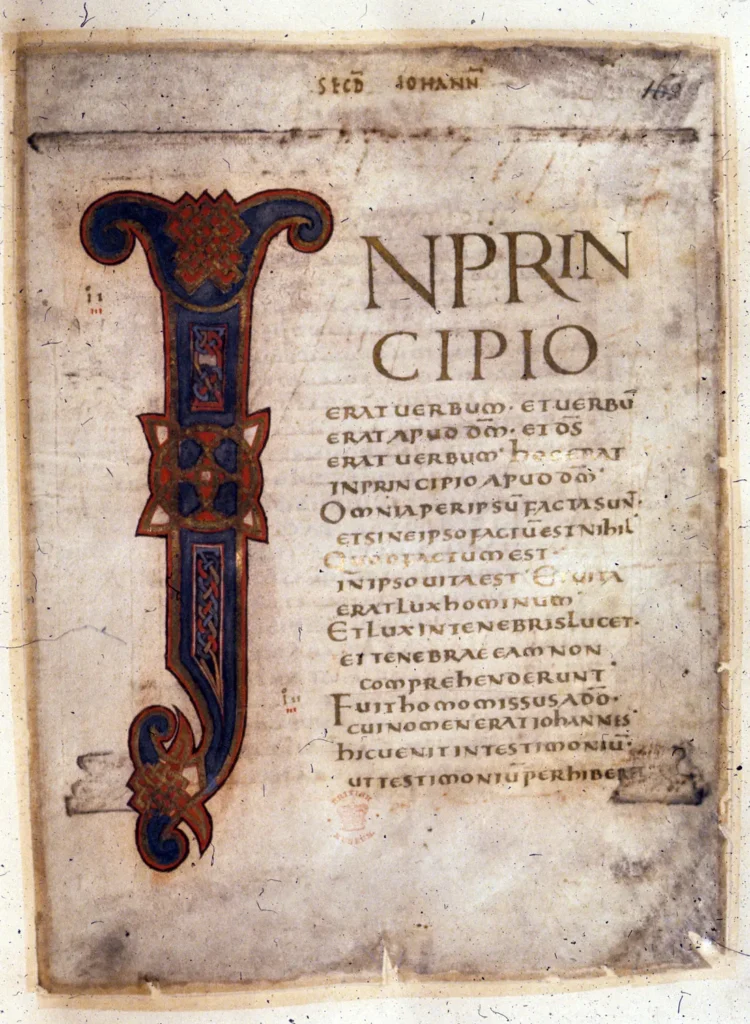 SECD̅ IOHANN̅
162
INPRIN
CIPIO
ERAT UERBUM· ET UERBŪ
ERAT APUD DM̅· ET DS̅
ERAT UERBUM· hOC ERAT
IN PRINCIPIO APUD DM̅
OMNIA PER IPSŪ FACTA SUN̅·
ET SINE IPSO FACTŪ EST NIhIL
QUOD FACTUM EST·
IN IPSO UITA EST· ET UITA
ERAT LUX hOMINUM
ET LUX IN TENEBRIS LUCET·
ET TENEBRAE EAM NON
COMPREhENDERUNT
FUIT hOMO MISSUS A DO̅·
CUI NOMEN ERAT IOhANNES
hIC UENIT IN TESTIMONIŪ·
UT TESTIMONIŪ PERhIBER
BRITISH
MUSEUM